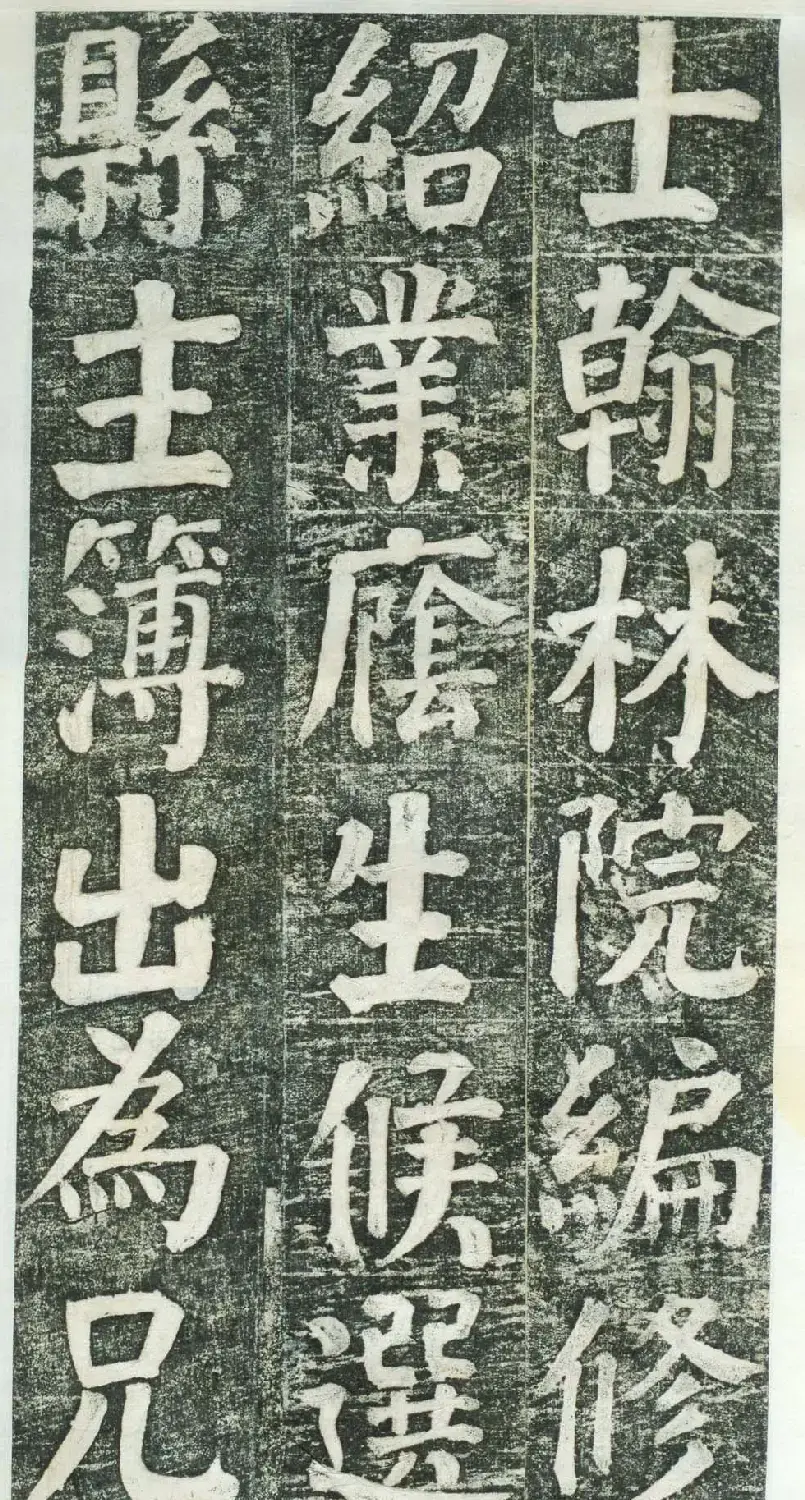 士翰林院編修
紹業廕生候選
縣主簿出為兄